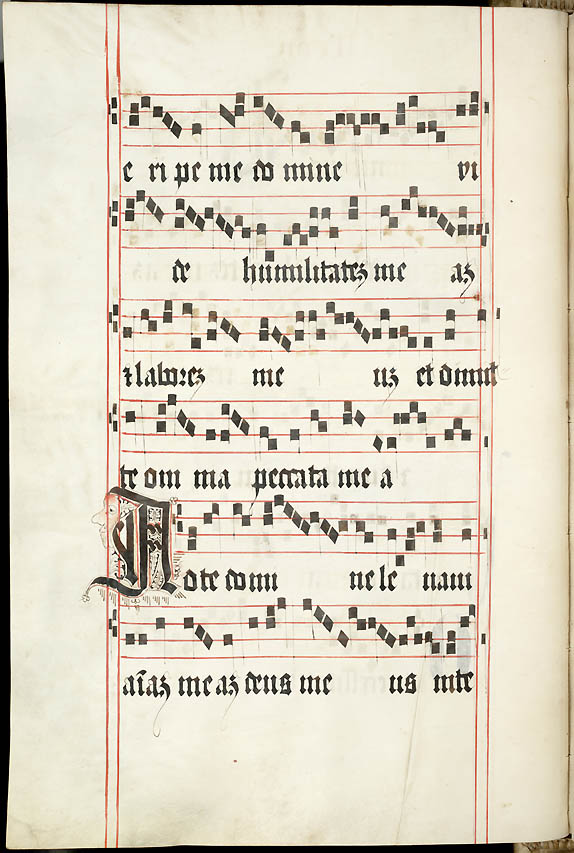 e ri pe me do mine vi
de humilitateʒ me aʒ
⁊ laboreʒ me uʒ et dimit
te om ma peccata me a
Ad te domi ne le uaui
aīaʒ me aʒ deus me us inte